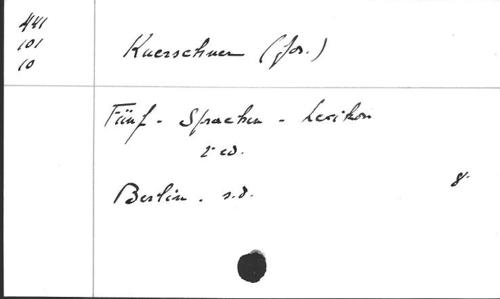 441
101
10
Kuerschner (Jos.)
Fünf - Sprachen - Lexikon
2 ed.
Berlin. s.d.
8.